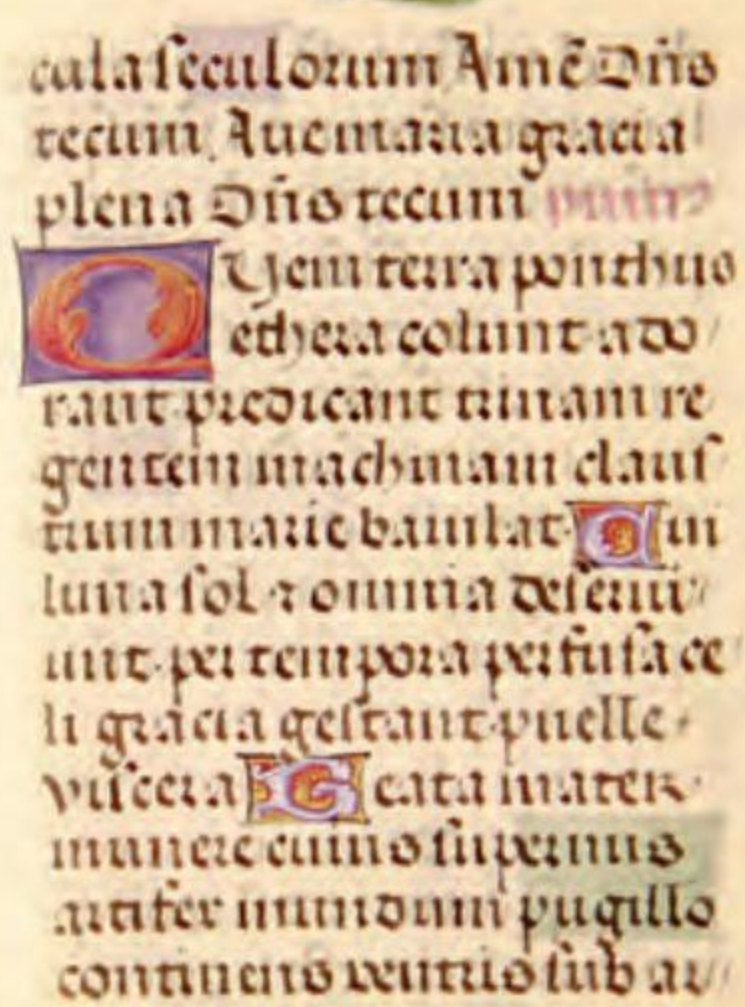 cula seculorum Amē Dñs
tecum. Aue maria gracia
plena Dñs tecum
Quem terra ponthus
ethera colunt ado
rant predicant trinam re
gentem machinam claus
trum marie baiulat. Cui
luna sol ⁊ omnia deserui
unt. per tempora perfusa ce
li gracia gestant puelle
viscera Beata mater
munere cuius supernus
artifer mundum pugillo
continens ventris sub ar